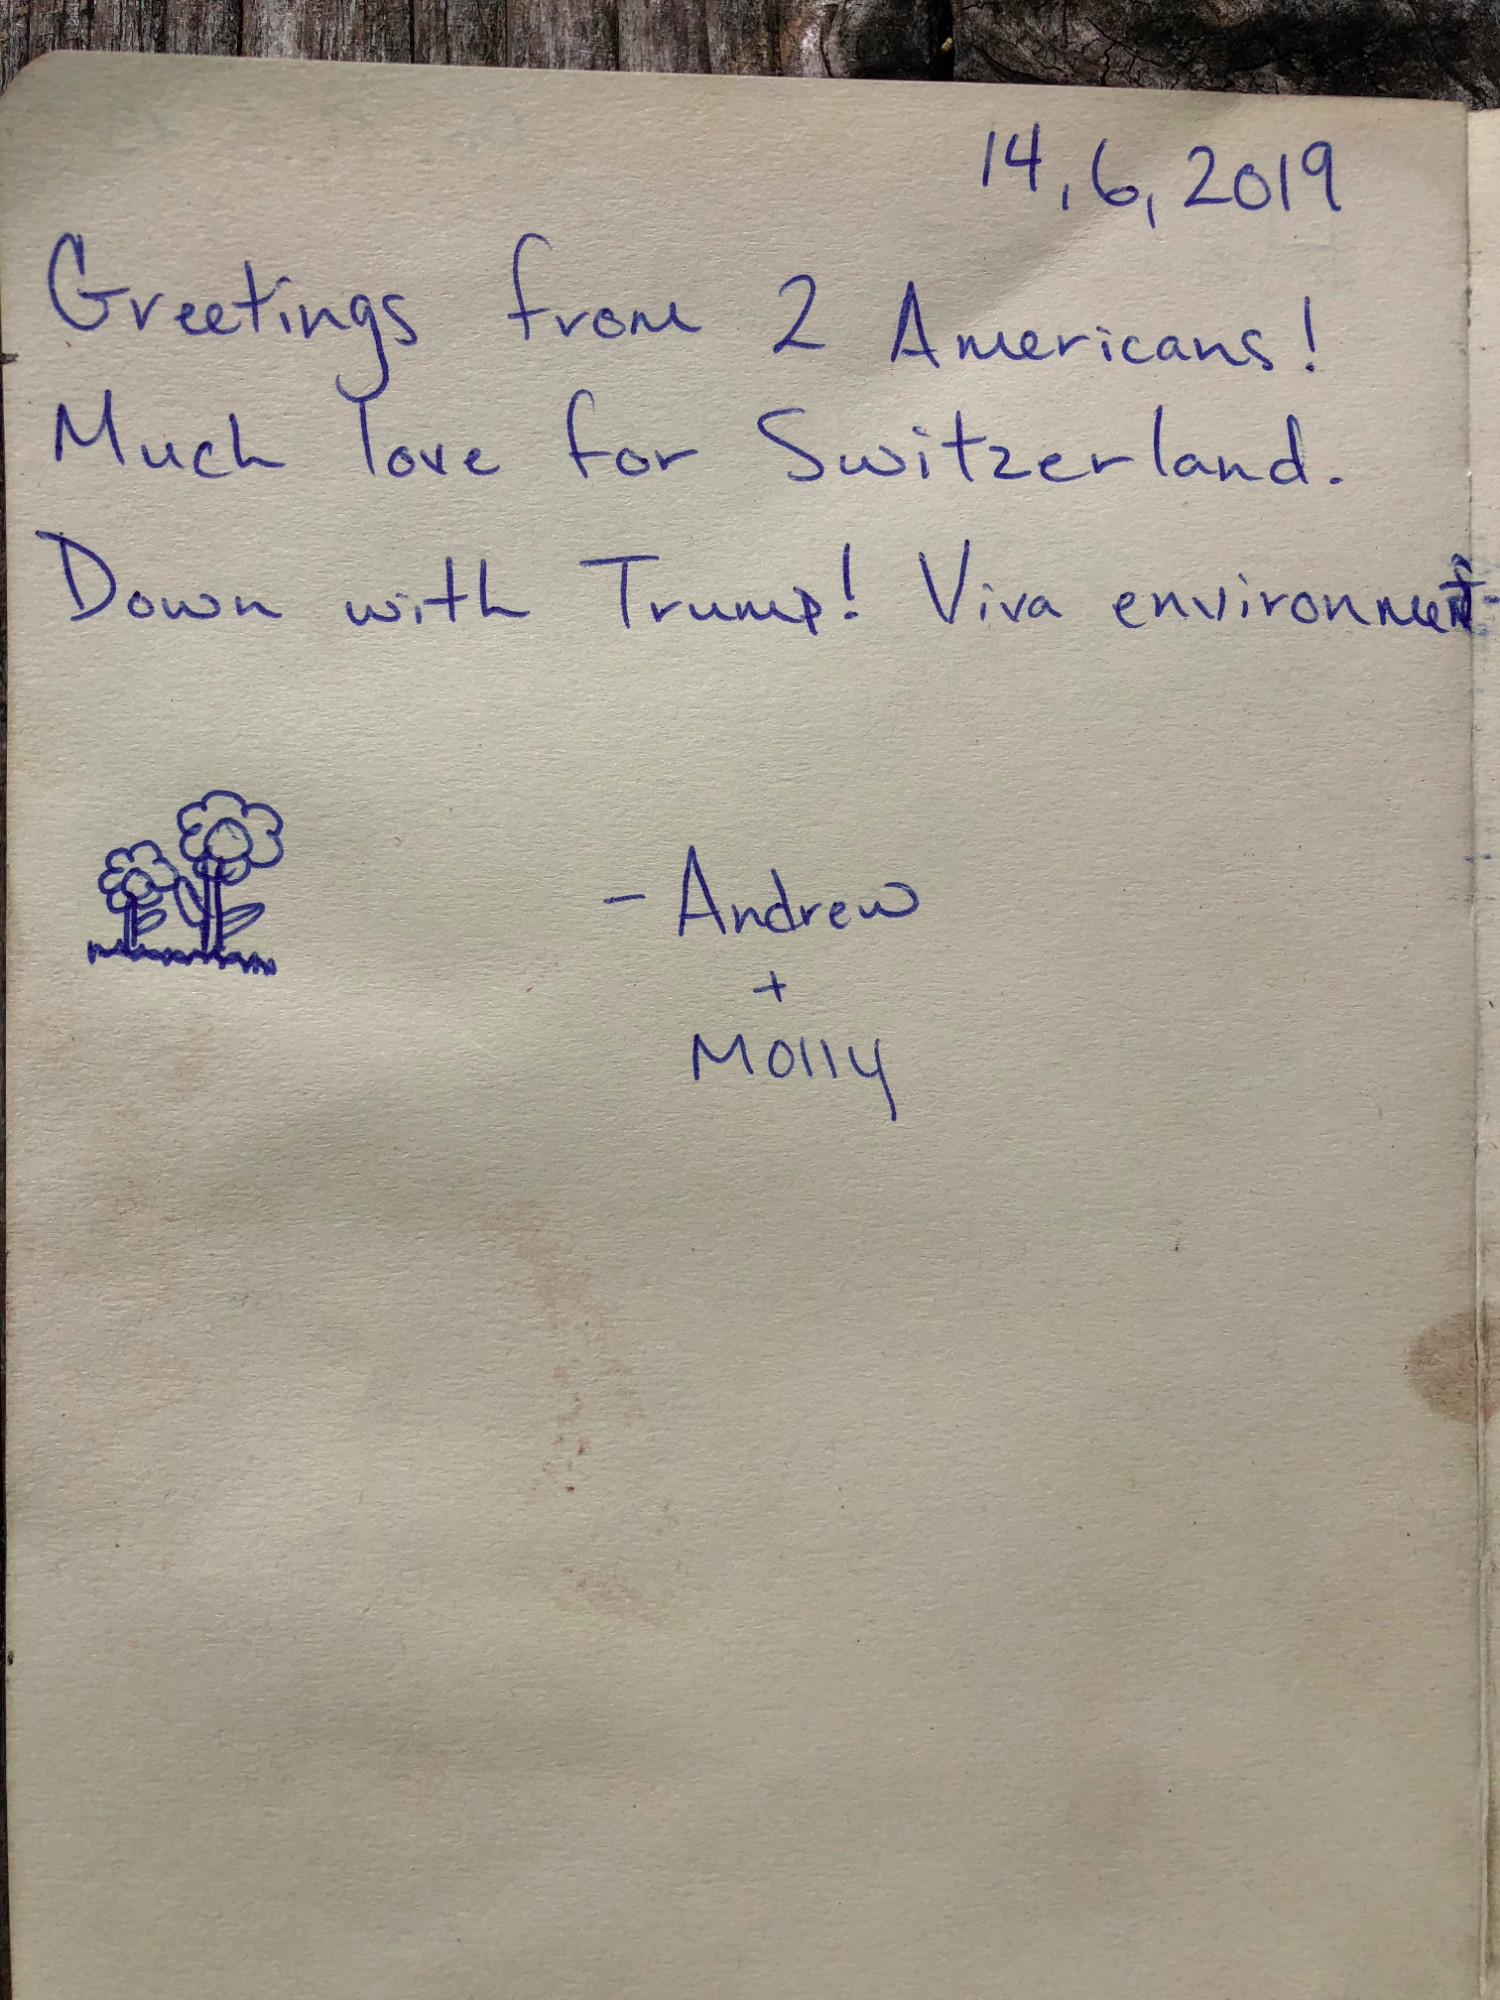 14, 6, 2019
Greetings from 2 Americans!
Much love for Switzerland.
Down with Trump! Viva environment
- Andrew
+
Molly